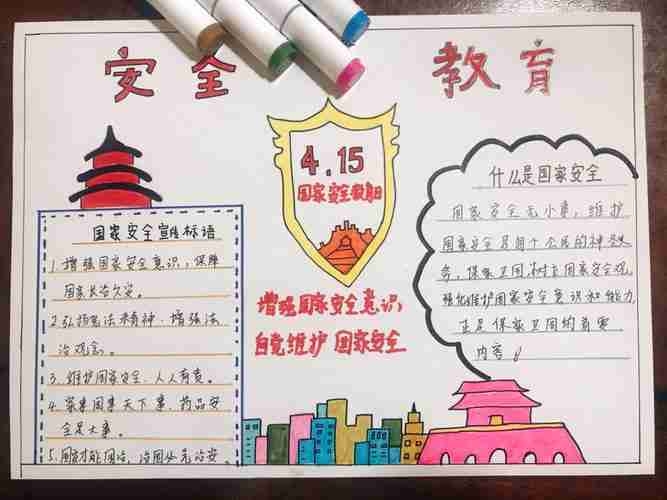 安全 教育
国家安全宣传标语
1.增强国家安全意识,保障
国家长治久安。
2.弘扬宪法精神,增强法
治观念。
3.维护国家安全,人人有责。
4.家事国事天下事,药品安
全是大事。
5.国
4.15
国家安全教育日
增强国家安全意识
自觉维护 国家安全
什么是国家安全
国家安全无小事,维护
国家安全是每个公民的神圣义
务,保家卫国,树立国家安全观,
强化维护国家安全意识和能力
正是保家卫国的首要
内容。